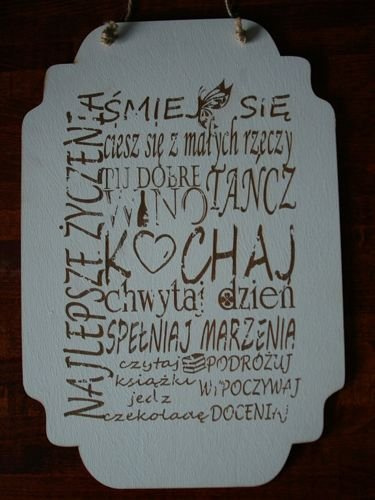 NAJLEPSZE ŻYCZENIA
ŚMIEJ SIĘ
ciesz się z małych rzeczy
PIJ DOBRE
WINO
TAŃCZ
KOCHAJ
chwytaj dzień
SPEŁNIAJ MARZENIA
czytaj
książki
PODRÓŻUJ
WYPOCZYWAJ
jedz
czekoladę
DOCENIAJ